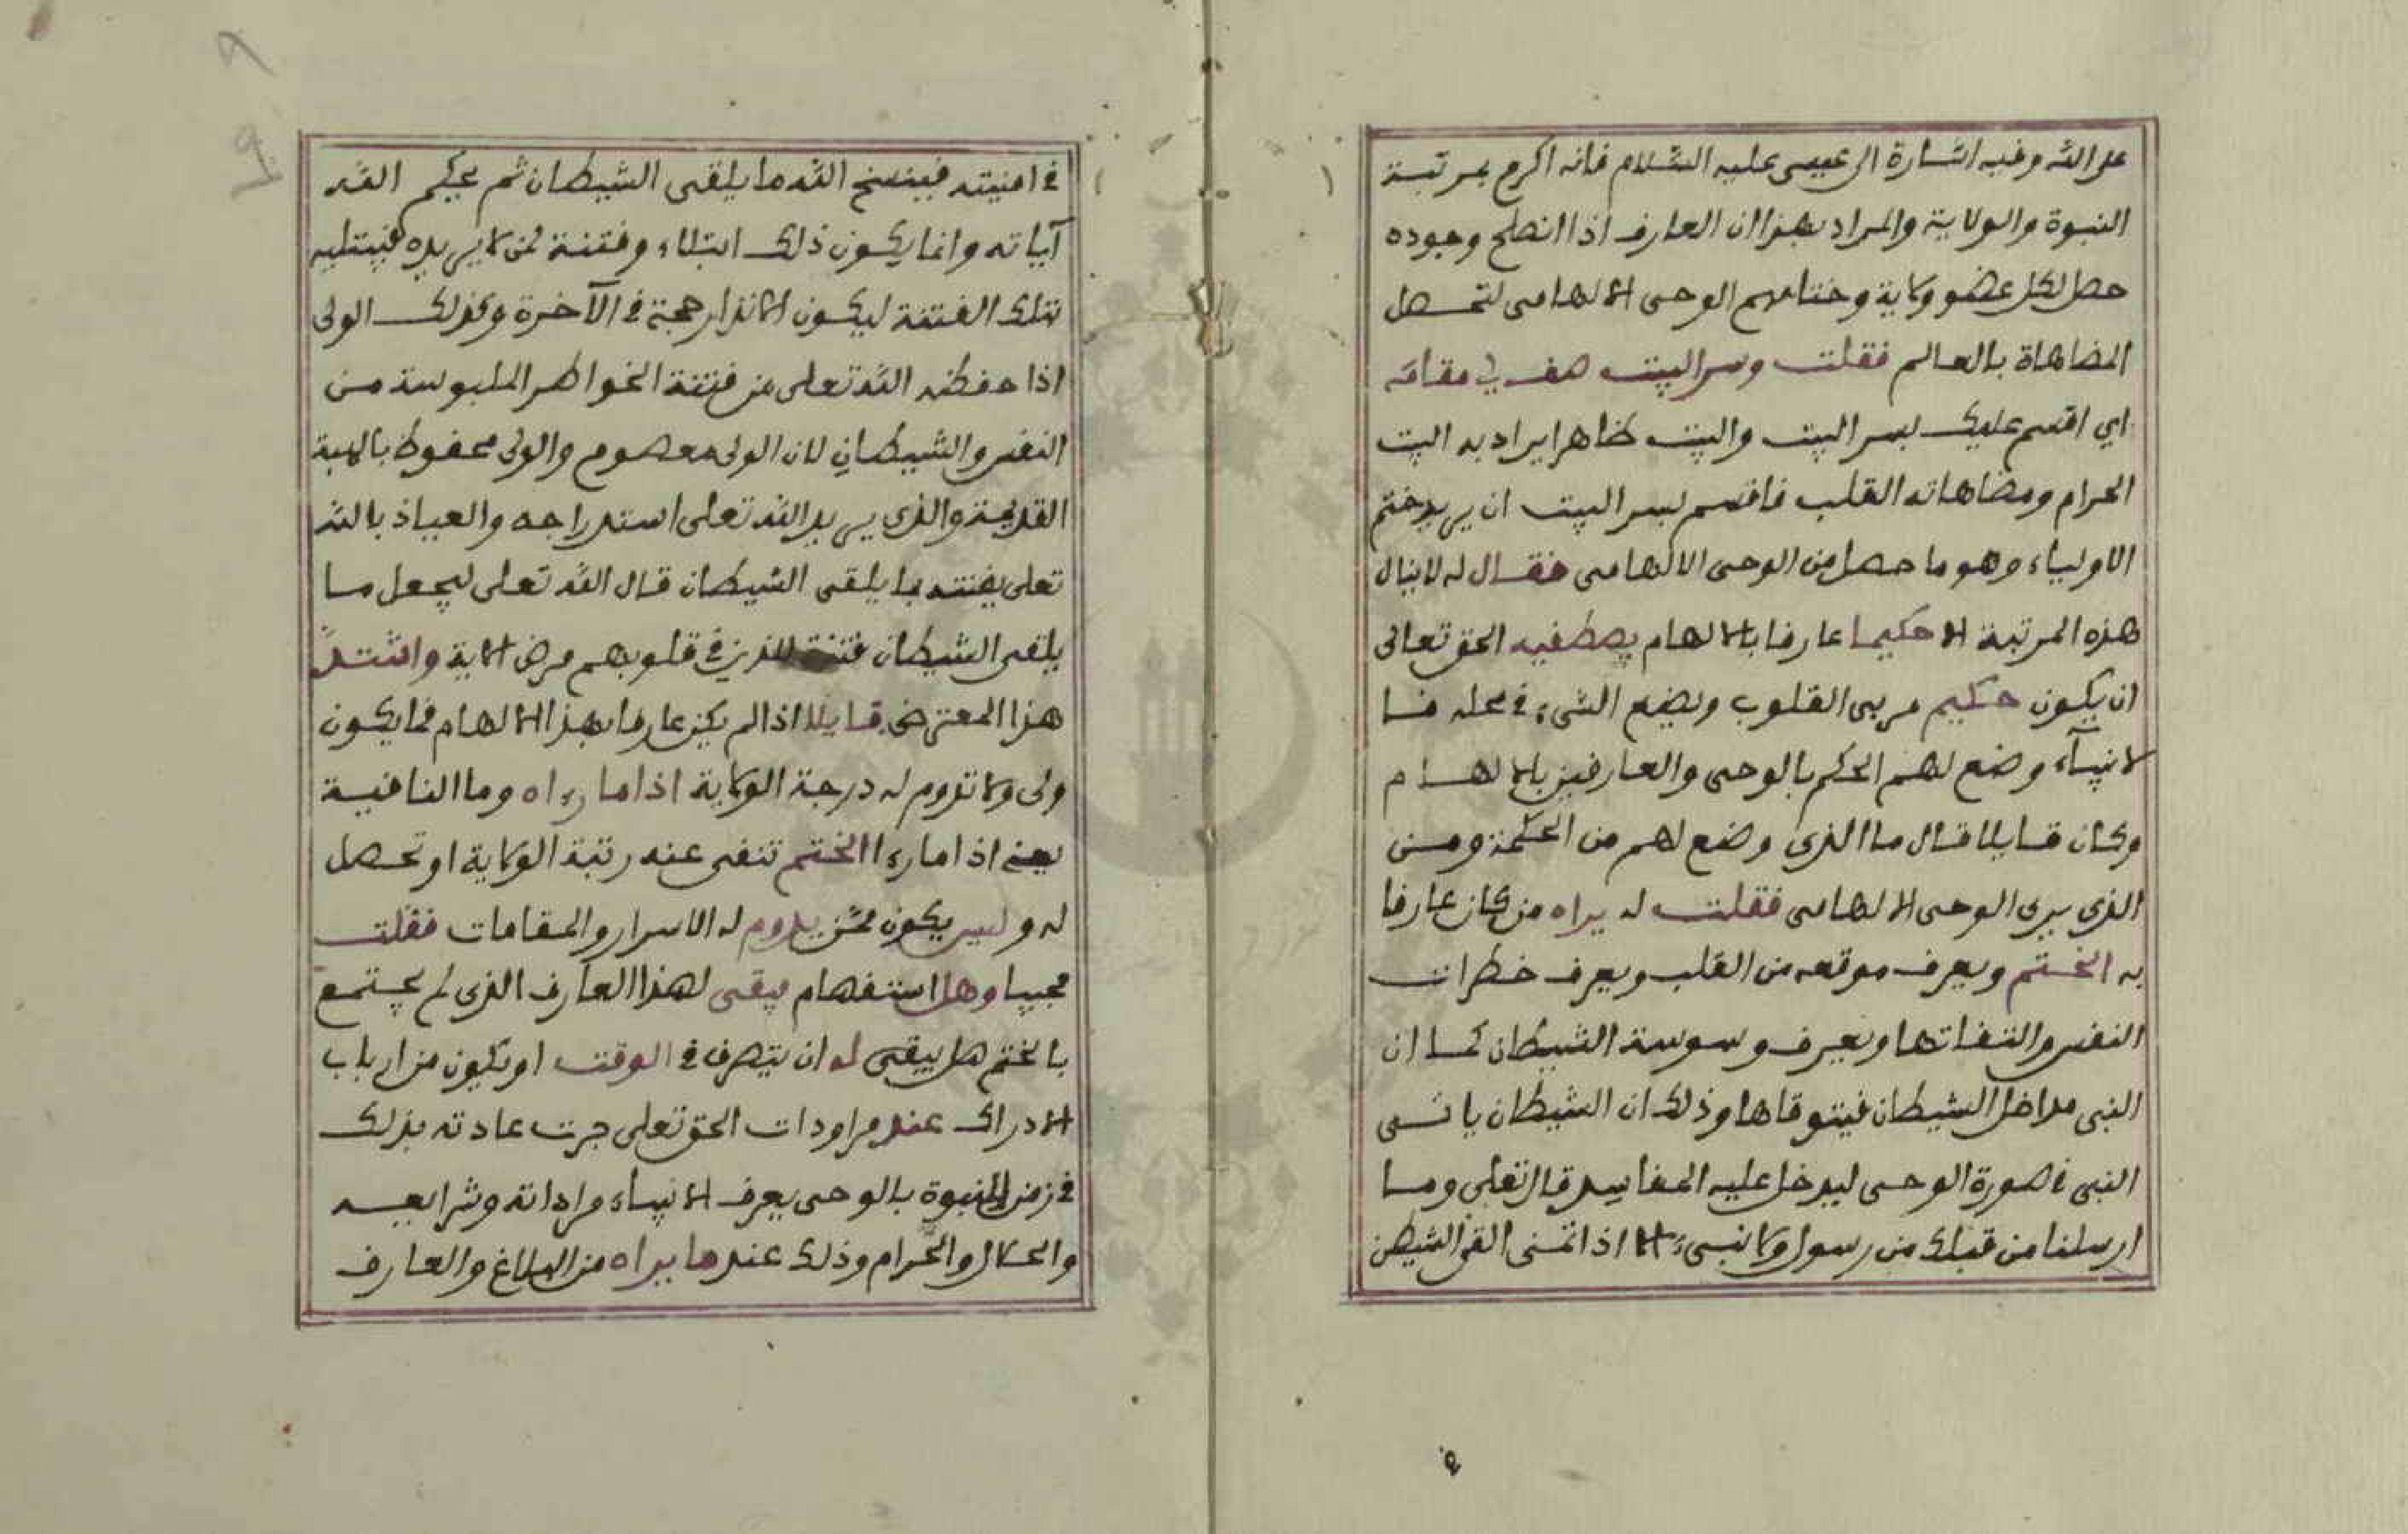 على الله وفيه اشارة الى عيسى عليه السلام فانه اكرم بمرتبة
النبوة والولاية والمراد بهذا ان العارف اذا انصلح وجوده
حصل لكل عضو ولاية وختامهم الوحى الالهامى لتحصل
المضاهاة بالعالم فقلت وسر البيت هف في مقامه
اي اقسم عليك بسر البيت والبيت ظاهرا يراد به البيت
الحرام ومضاهاته القلب فاقسم بسر البيت ان يريد ختم
الاولياء وهو ما حصل من الوحى الالهامى فقال له لا ينال
هذه المرتبة الا حكيما عارفا بالالهام يصطفيه الحق تعالى
ان يكون حكيم مربى القلوب ويضع الشىء فى محله فا
لانبيآء وضع لهم الحكم بالوحى والعارفين بالالهام
وكان قايلا قال ما الذى وضع لهم من الحكمة ومن
الذى يرى الوحى الالهامى فقلت له يراه من كان عارفا
به الختم ويعرف موقعه من القلب ويعرف خطرات
النفس والتفاتها ويعرف وسوسة الشيطان كما ان
النبى مداخل الشيطان فيتوقاها وذلك ان الشيطان ياتى
النبى فى صورة الوحى ليدخل عليه المفاسد قال تعلى وما
ارسلنا من قبلك من رسول ولا نبىء الا اذا تمنى القى الشيطن
فى امنيته فينسخ الله ما يلقى الشيطان ثم يحكم الله
آياته وانما يكون ذلك ابتلاء وفتنة لمن لا يريده فيبتليه
بتلك الفتنة ليكون الانذار حجة فى الآخرة وكذلك الولى
اذا حفظه الله تعلى من فتنة الخواطر الملبوسة من
النفس والشيطان لان الولى معصوم والولى محفوظ بالهبة
القديمة والذى يريد الله تعلى استدراجه والعياذ بالله
تعلى يفتنه بما يلقى الشيطان قال الله تعلى ليجعل ما
يلقى الشيطان فتنة للذين فى قلوبهم مرض الاية وانشد
هذا المعترض قايلا اذا لم يكن عارفا بهذا الالهام فما يكون
ولى ولا تدوم له درجة الولاية اذا ما رءاه وما النافية
يعنى اذا ما رءا الختم تنفى عنه رتبة الولاية او تحصل
له وليس يكون ممن يدوم له الاسرار والمقامات فقلت
مجيبا وهل استفهام يبقى لهذا العارف الذى لم يجتمع
بالختم هل يبقى له ان يتصرف فى الوقت او يكون من ارباب
الادراك عند مراودات الحق تعلى جرت عادته بذلك
فى زمن النبوة بالوحى يعرف الانبياء مراداته وشرايعه
والحلال والحرام وذلك عندما يراه من البلاغ والعارف